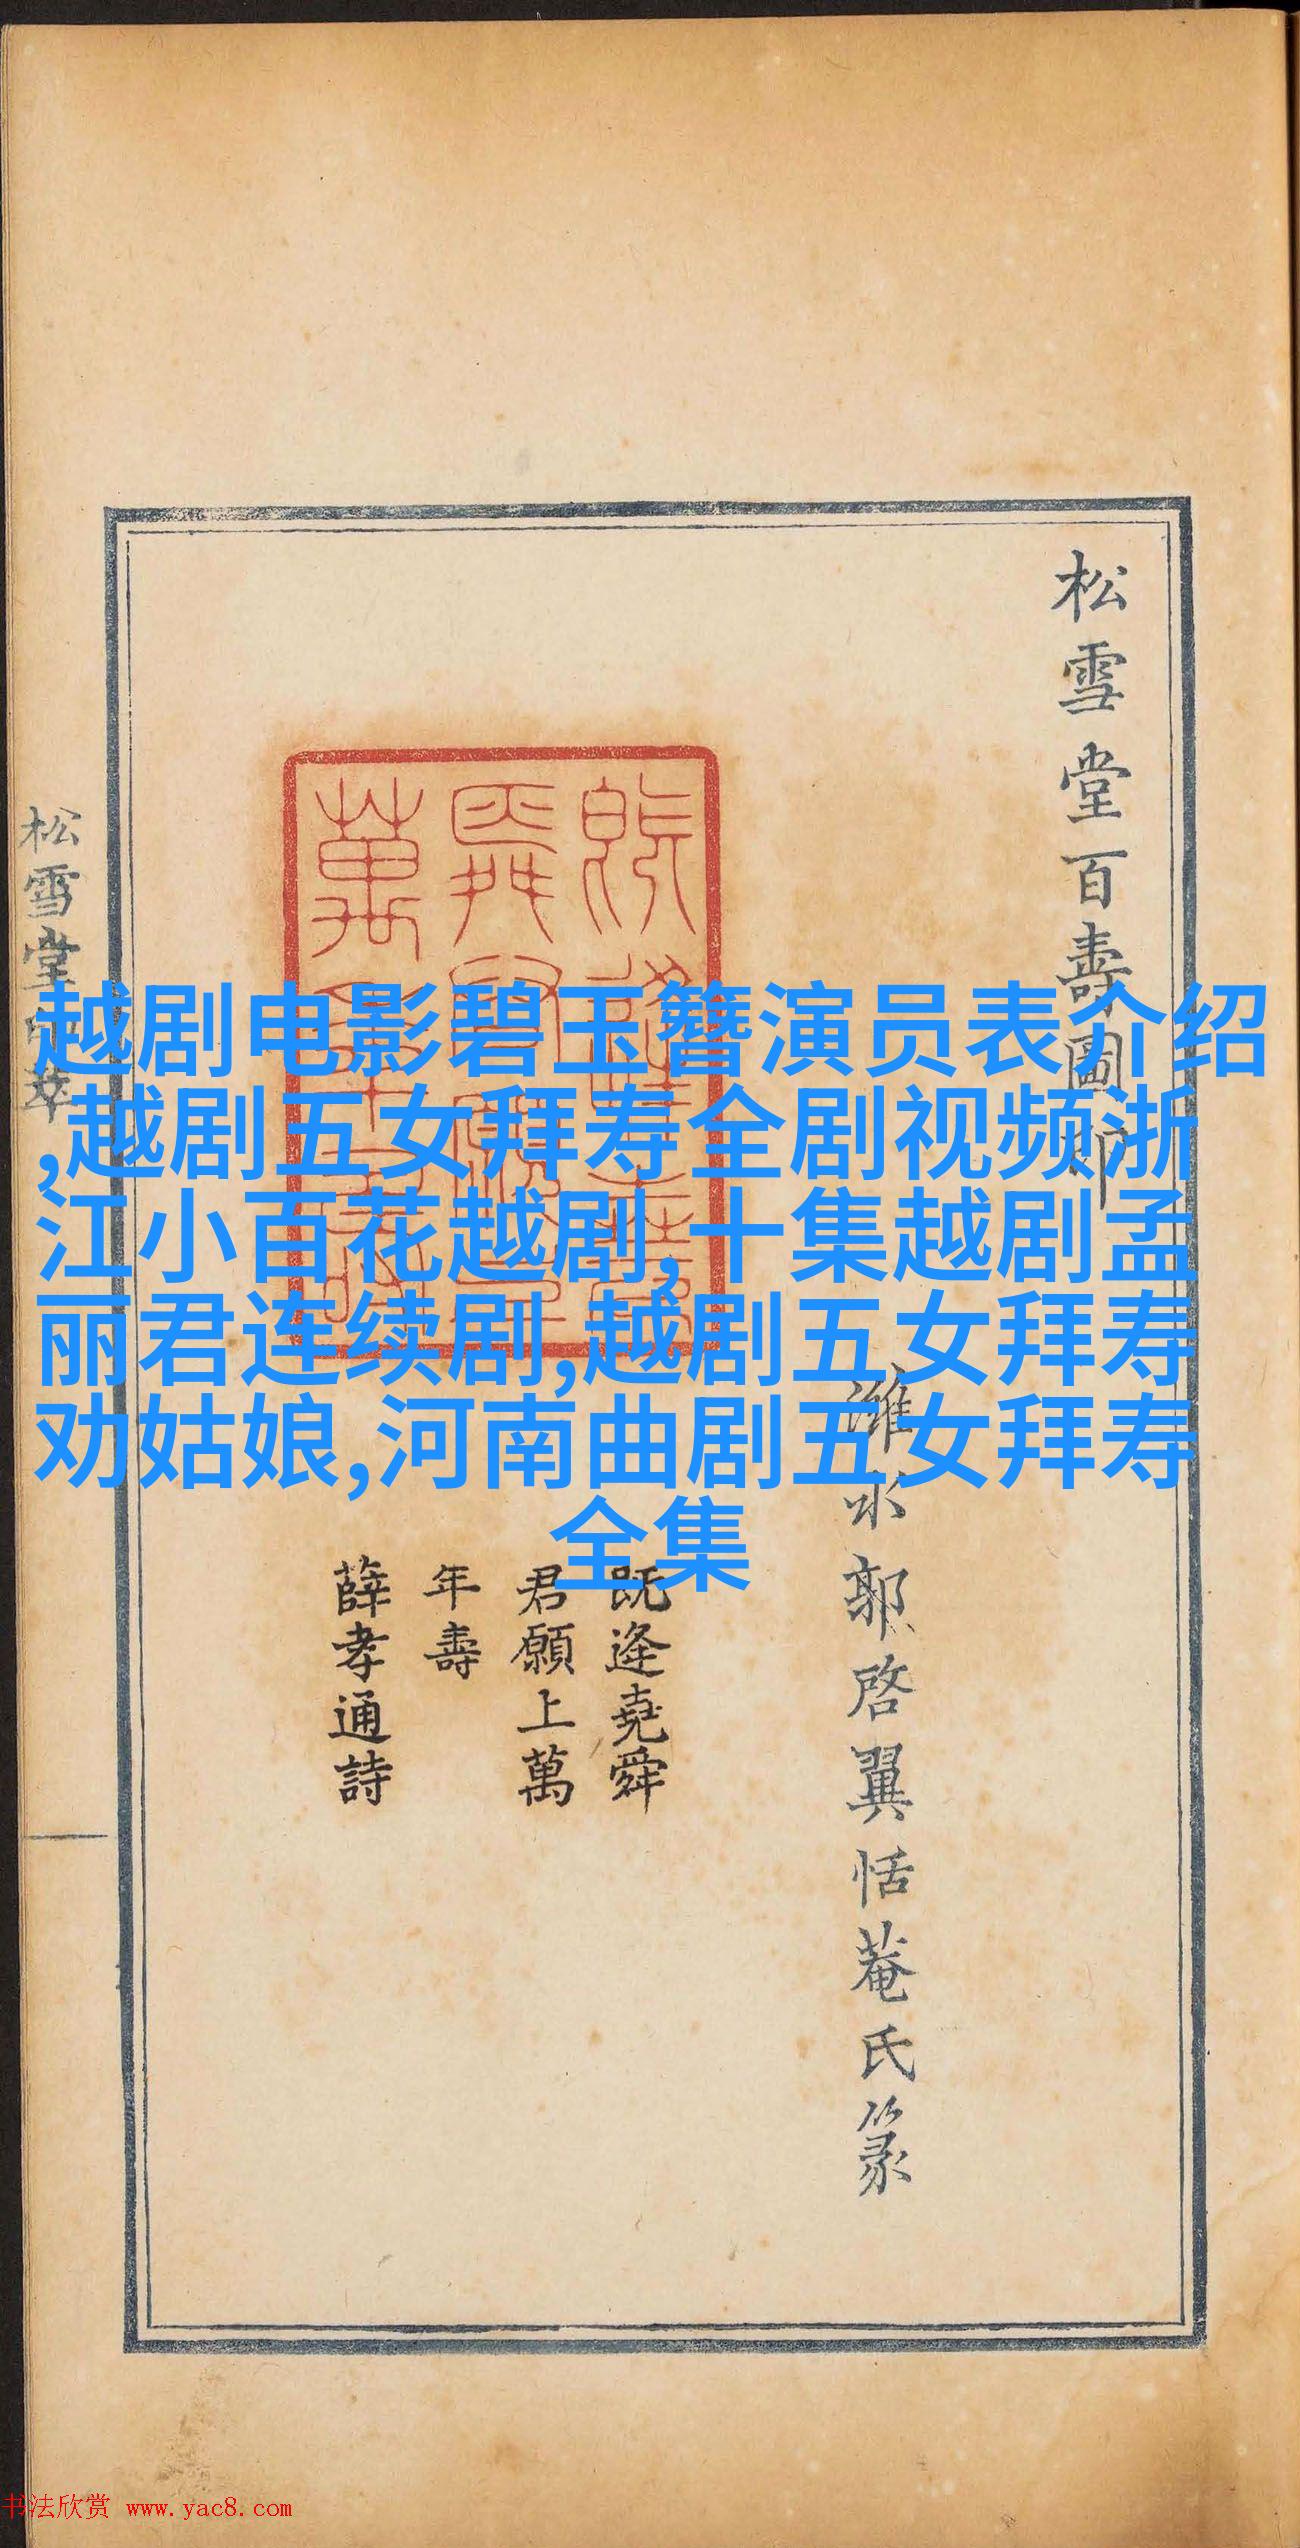 越剧电影碧玉簪演员表介绍
,越剧五女拜寿全剧视频浙
江小百花越剧,十集越剧孟
丽君连续剧,越剧五女拜寿
劝姑娘,河南曲剧五女拜寿
全集
松雪堂百壽圖印
濰水郭啓翼恬菴氏篆
既逢堯舜
君願上萬
年壽
薛孝通詩
松雪堂印萃
书法欣赏 www.yac8.com